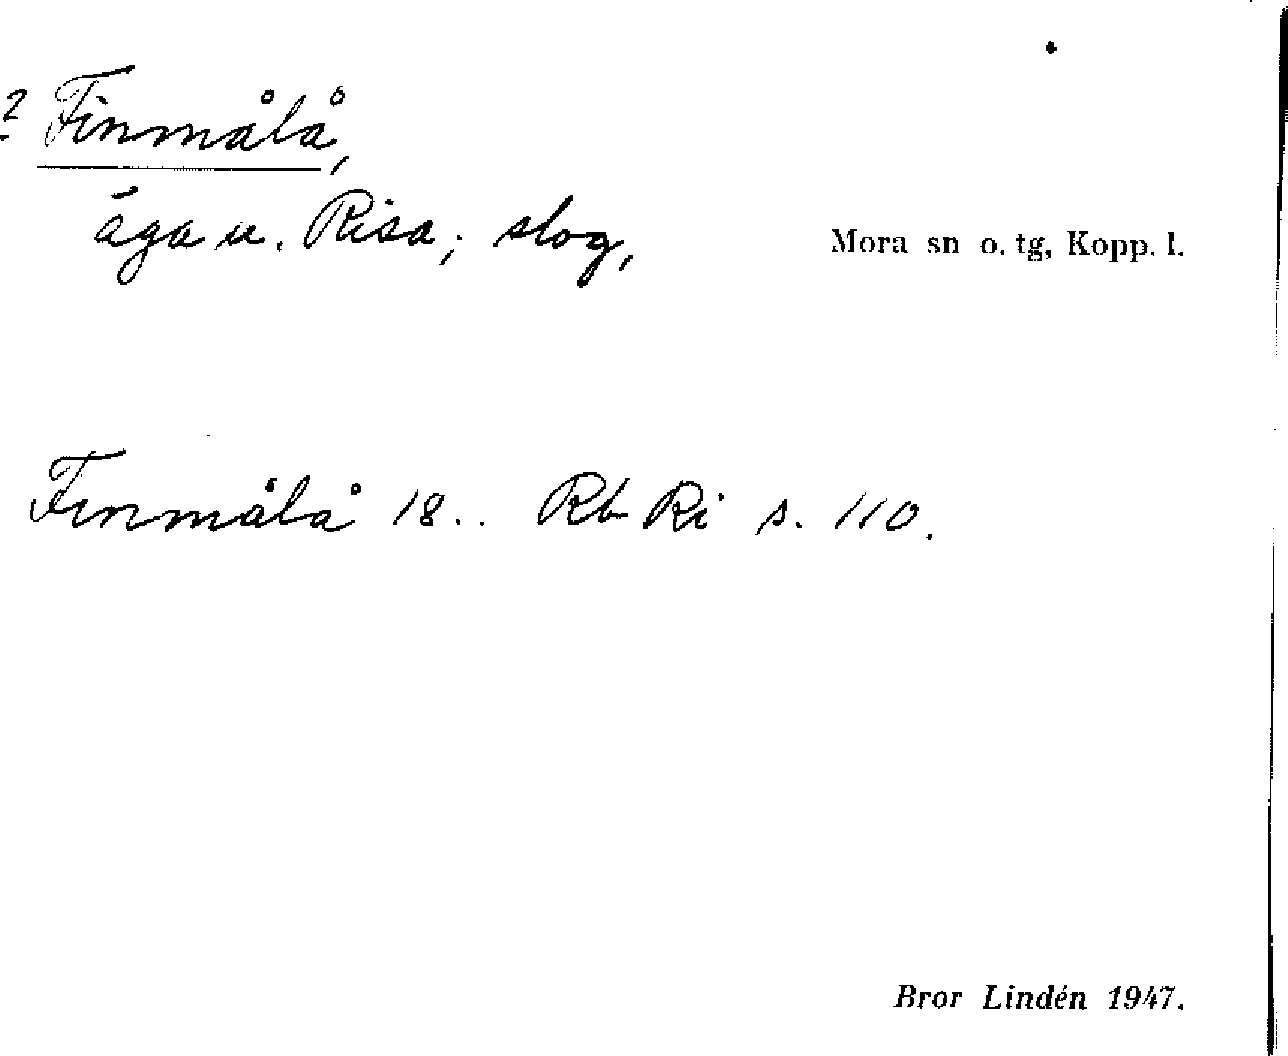 ? Finmålå,
äga u. Risa; slog, Mora sn o. tg, Kopp. l.
Finmålå 18.. Rb Ri s. 110.
Bror Lindén 1947.